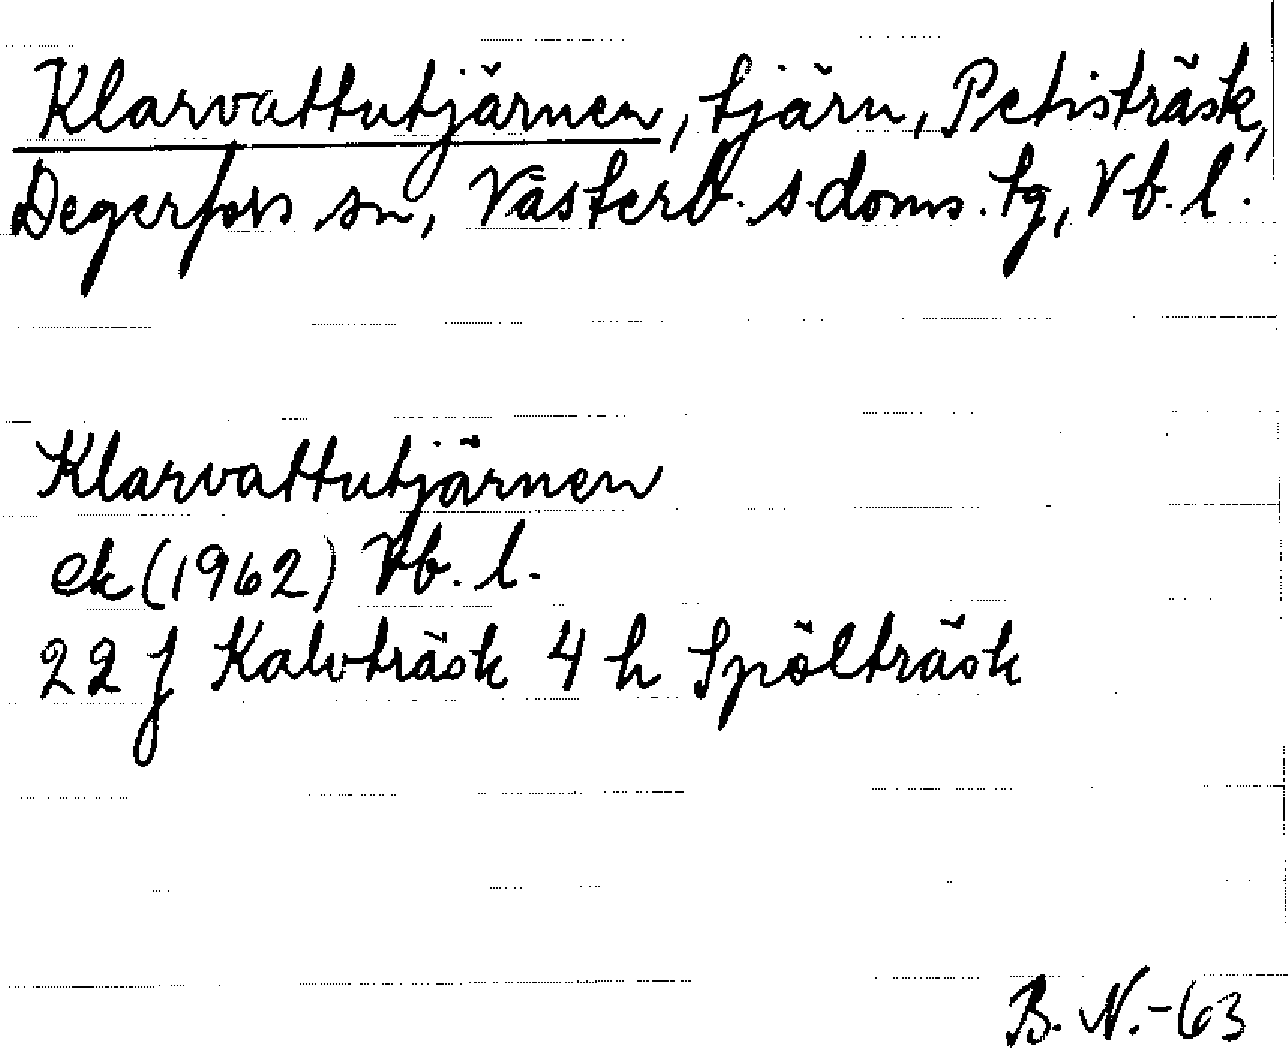 Klarvattutjärnen, tjärn, Petisträsk,
Degerfors sn, Västerb. s. doms. tg, Vb. l.
Klarvattutjärnen
ek (1962) Vb. l.
22 J Kalvträsk 4 h Spölträsk
B. N. -63